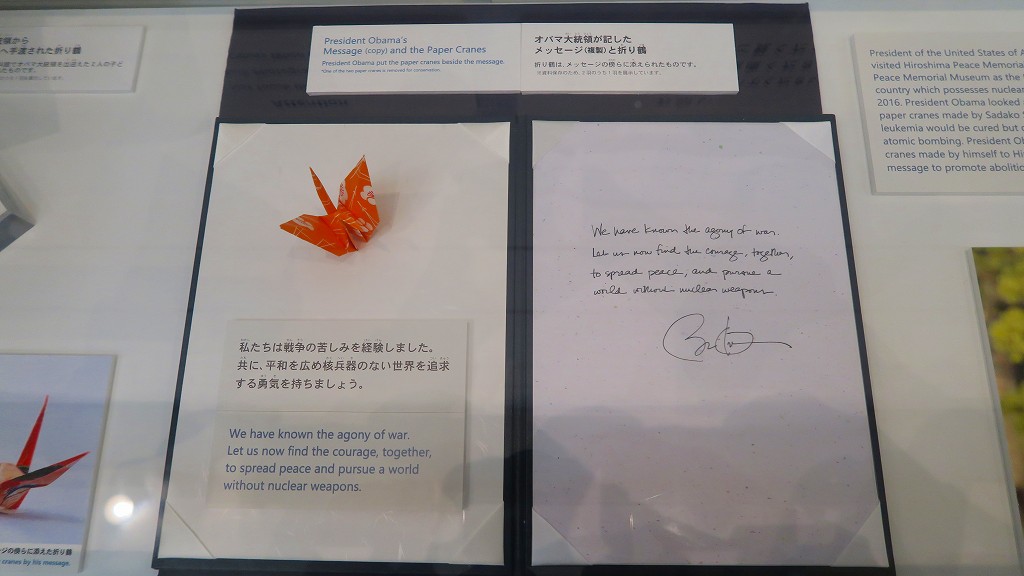 President Obama's
Message (copy) and the Paper Cranes
President Obama put the paper cranes beside the message.
*One of the two paper cranes is removed for conservation.
オバマ大統領が記した
メッセージ(複製)と折り鶴
折り鶴は、メッセージの傍らに添えられたものです。
※資料保存のため、2羽のうち1羽を展示しています。
統領から
へ手渡された折り鶴
でオバマ大統領を出迎えた2人の子と
たものです。
We have known the agony of war.
Let us now find the courage, together,
to spread peace, and pursue a
world without nuclear weapons.
私たちは戦争の苦しみを経験しました。
共に、平和を広め核兵器のない世界を追求
する勇気を持ちましょう。
We have known the agony of war.
Let us now find the courage, together,
to spread peace and pursue a world
without nuclear weapons.
President of the United States of A
visited Hiroshima Peace Memoria
Peace Memorial Museum as the
country which possesses nuclear
2016. President Obama looked
paper cranes made by Sadako
leukemia would be cured but
atomic bombing. President O
cranes made by himself to Hi
message to promote abolitio
ージの傍らに添えた折り鶴
cranes by his message.